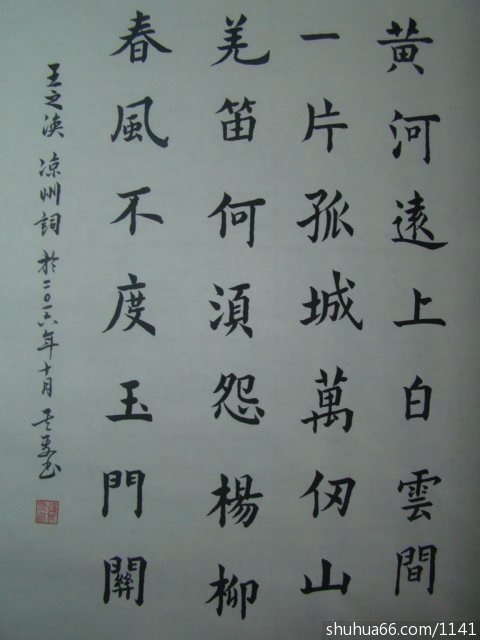 黄河遠上白雲間
一片孤城萬仞山
羌笛何湏怨楊柳
春風不度玉門關
王之渙 凉州詞 於二〇一六年十月
shuhua66.com/1141